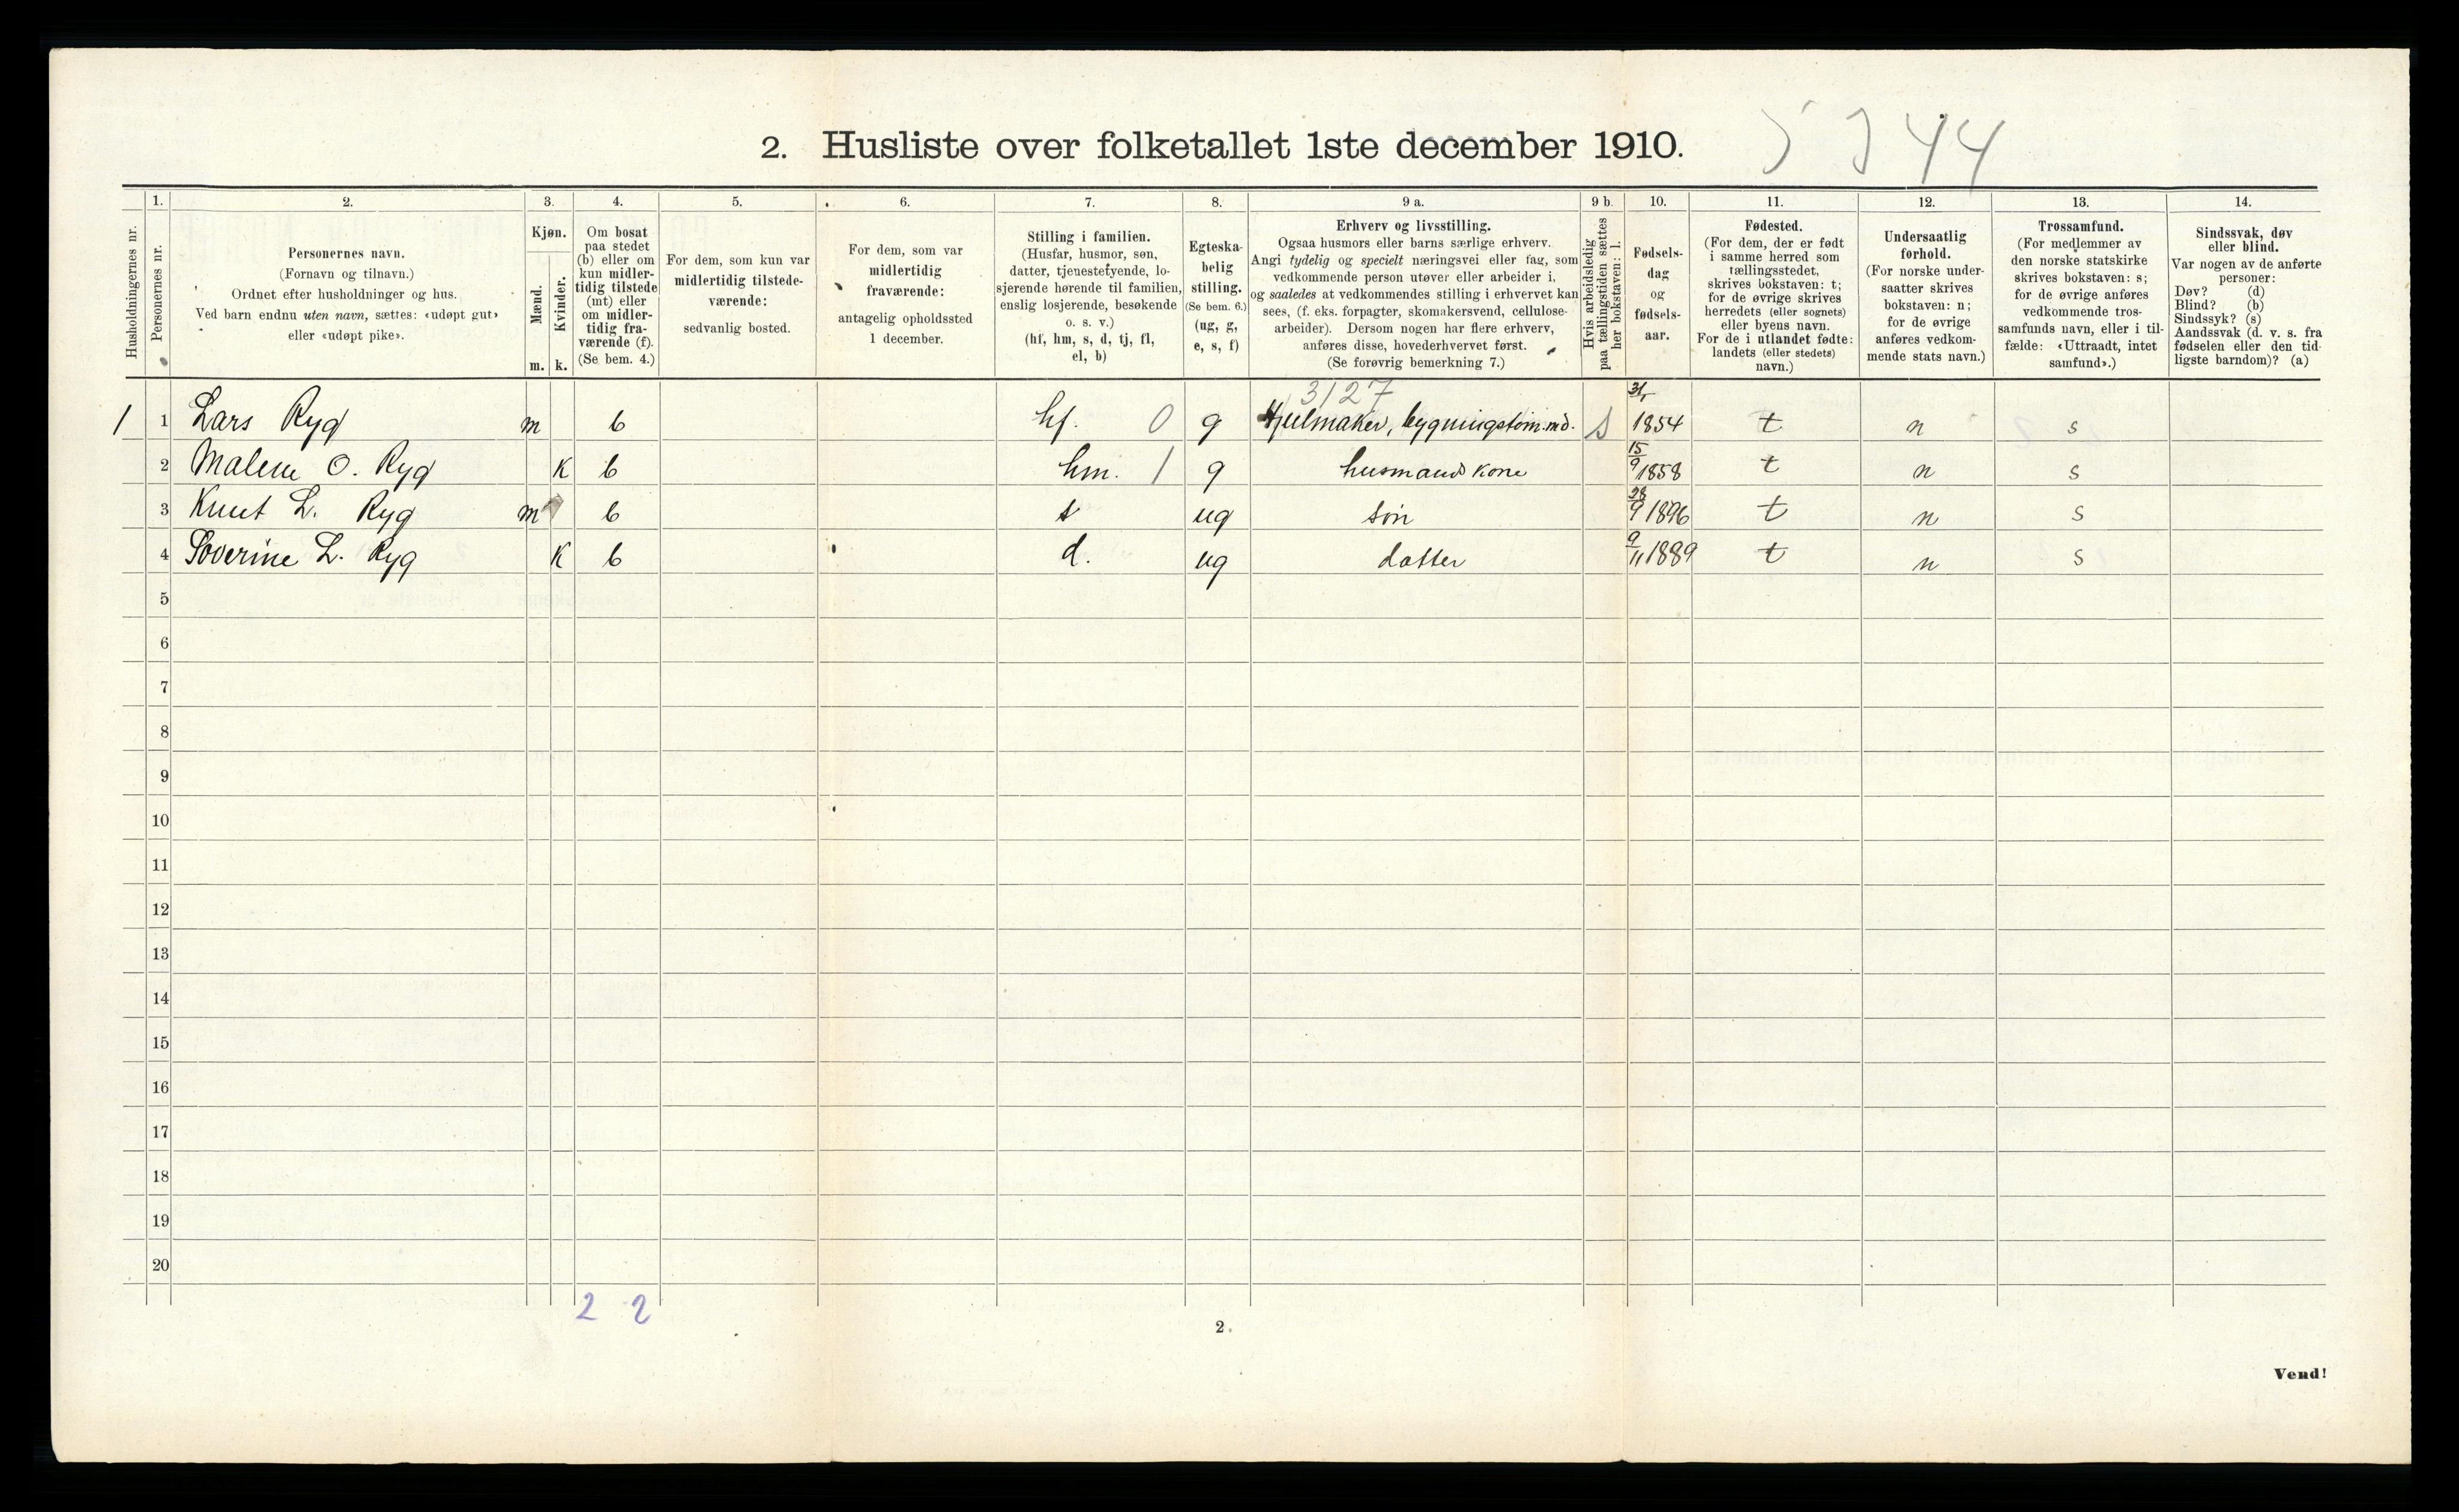 2. Husliste over folketallet 1ste december 1910.
44
Husholdningernes nr.
1.
Personernes nr.
2.
Personernes navn.
(Fornavn og tilnavn.)
Ordnet efter husholdninger og hus.
Ved barn endnu uten navn, sættes: «udøpt gut»
eller «udøpt pike».
3.
Kjøn.
Mænd.
Kvinder.
m. k.
4.
Om bosat
paa stedet
(b) eller om
kun midler-
tidig tilstede
(mt) eller
om midler-
tidig fra-
værende (f).
(Se bem. 4.)
5.
For dem, som kun var
midlertidig tilstede-
værende:
sedvanlig bosted.
6.
For dem, som var
midlertidig
fraværende:
antagelig opholdssted
1 december.
7.
Stilling i familien.
(Husfar, husmor, søn,
datter, tjenestetyende, lo-
sjerende hørende til familien,
enslig losjerende, besøkende
o. s. v.)
(hf, hm, s, d, tj, fl,
el, b)
8.
Egteska-
belig
stilling.
(Se bem. 6.)
(ug, g,
e, s, f)
9 a.
Erhverv og livsstilling.
Ogsaa husmors eller barns særlige erhverv.
Angi tydelig og specielt næringsvei eller fag, som
vedkommende person utøver eller arbeider i,
og saaledes at vedkommendes stilling i erhvervet kan
sees, (f. eks. forpagter, skomakersvend, cellulose-
arbeider). Dersom nogen har flere erhverv,
anføres disse, hovederhvervet først.
(Se forøvrig bemerkning 7.)
9 b.
Hvis arbeidsledig
paa tællingstiden sættes
her bokstaven: l.
10.
Fødsels-
dag
og
fødsels-
aar.
11.
Fødested.
(For dem, der er født
i samme herred som
tællingsstedet,
skrives bokstaven: t;
for de øvrige skrives
herredets (eller sognets)
eller byens navn.
For de i utlandet fødte:
landets (eller stedets)
navn.)
12.
Undersaatlig
forhold.
(For norske under-
saatter skrives
bokstaven: n;
for de øvrige
anføres vedkom-
mende stats navn.)
13.
Trossamfund.
(For medlemmer av
den norske statskirke
skrives bokstaven: s;
for de øvrige anføres
vedkommende tros-
samfunds navn, eller i til-
fælde: «Uttraadt, intet
samfund».)
14.
Sindssvak, døv
eller blind.
Var nogen av de anførte
personer:
Døv? (d)
Blind? (b)
Sindssyk? (s)
Aandssvak (d. v. s. fra
fødselen eller den tid-
ligste barndom)? (a)
3127
1 1 Lars Ryg m b hf. 0 g Hjulmaker, bygningstøm.md. s 1854 t n s
2 Malene O. Ryg K b hm. 1 g husmands kone 15/9 1858 t n s
3 Knut L. Ryg m b s ug søn 28/9 1896 t n s
4 Soverine L. Ryg K b d. ug datter 9/11 1889 t n s
5
6
7
8
9
10
11
12
13
14
15
16
17
18
19
20
2 2
2.
Vend!